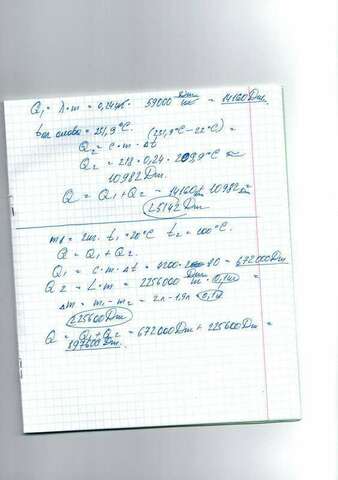 Q₁ = λ·m = 0,24кг · 59000 Дж/кг = 14160 Дж.
tпл олова = 231,9°C. (231,9°C − 22°C) =
Q₂ = c·m·Δt
Q₂ = 218·0,24·209,9°C ≈
10982 Дж.
Q = Q₁+Q₂ = 14160 + 10982 =
25142 Дж
mв = 2кг. t₁ = 20°C t₂ = 100°C.
Q = Q₁+Q₂.
Q₁ = c·m·Δt = 4200·2·80 = 672000 Дж
Q₂ = L·m = 2256000 Дж · 0,1кг =
Δm = m₁ − m₂ = 2л − 1,9л = 0,1кг
225600 Дж
Q = Q₁+Q₂ = 672000 Дж + 225600 Дж =
897600 Дж